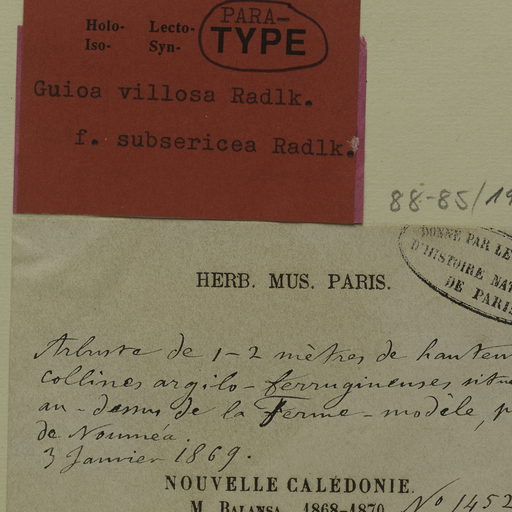 PARA-
Holo- Lecto- TYPE
Iso- Syn-
Guioa villosa Radlk.
f. subsericea Radlk.
88-85/19
DONNÉ PAR LE
D'HISTOIRE NAT
DE PARIS
HERB. MUS. PARIS.
Arbuste de 1-2 mètres de hauteur
collines argilo-ferrugineuses situé
au-dessus de la Ferme-modèle, p
de Nouméa.
3 Janvier 1869.
NOUVELLE CALÉDONIE.
M. BALANSA, 1868-1870. No 1452